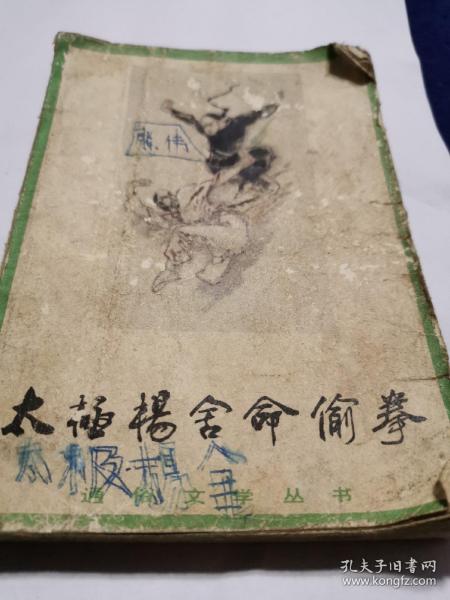 熊伟
太極楊舍命偷拳
太极楊舍
通俗文学丛书
孔夫子旧书网
www.kongfz.com